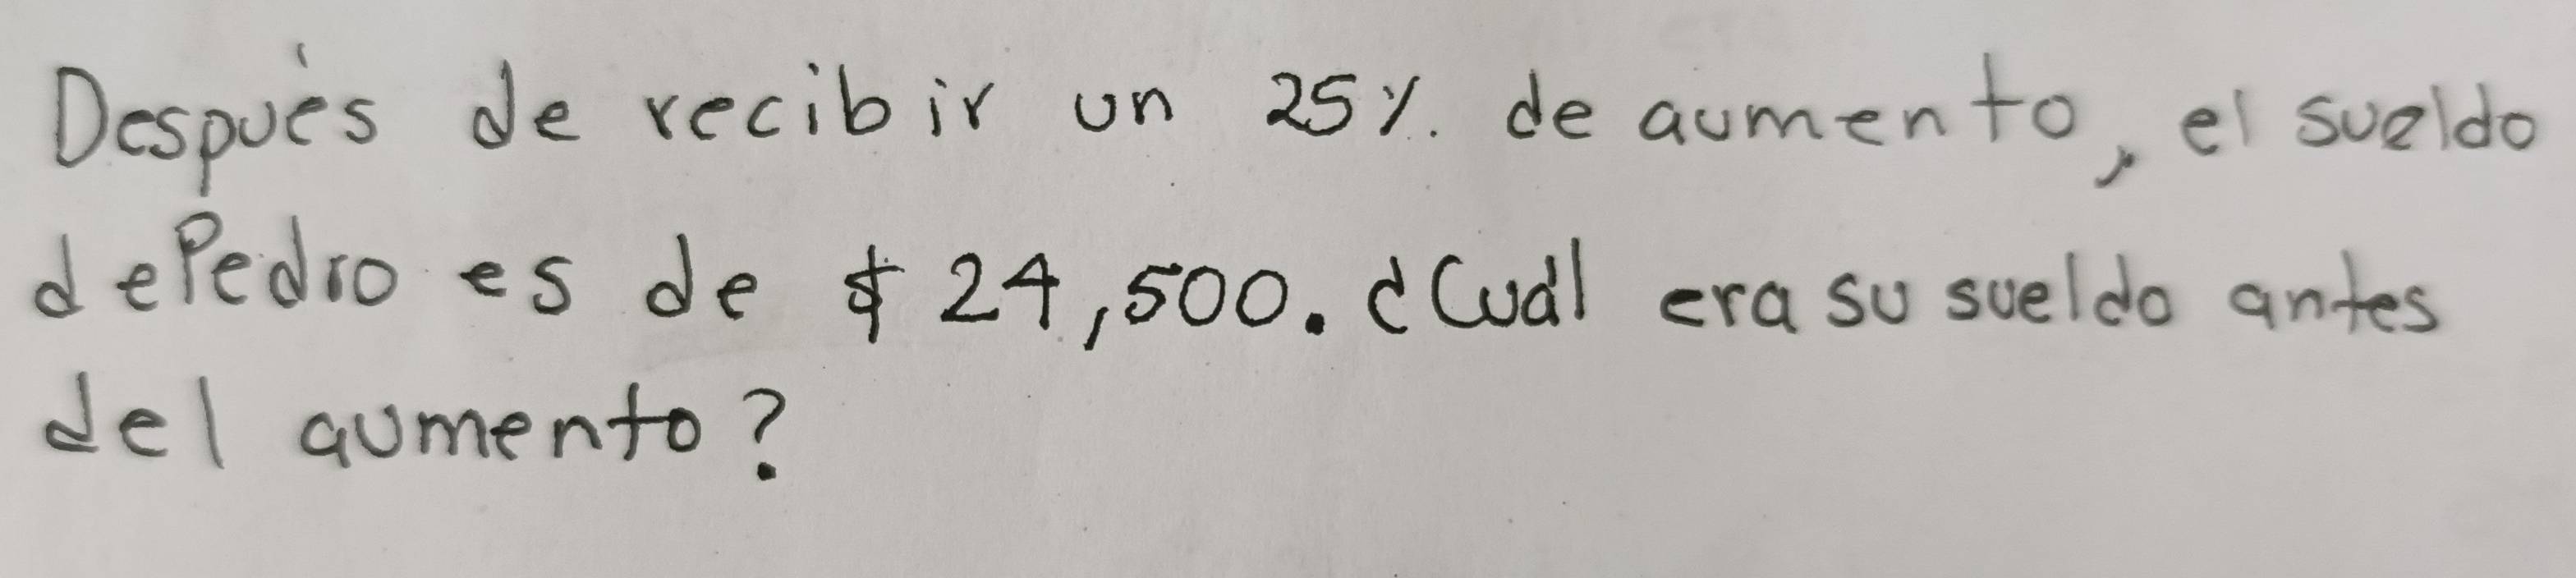 Después de recibir un 25%. de aumento, el sueldo
de Pedro es de $ 24,500. ¿Cuál era su sueldo antes
del aumento?